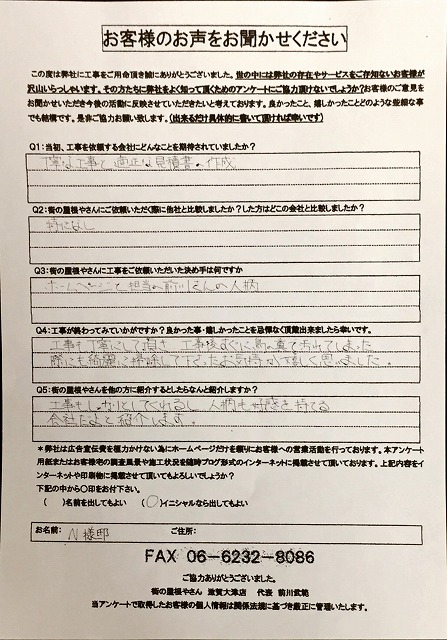 お客様のお声をお聞かせください
この度は弊社に工事をご用命頂き誠にありがとうございました。世の中には弊社の存在やサービスをご存知ないお客様が
沢山いらっしゃいます。その方たちに弊社をよく知って頂くためのアンケートにご協力頂けないでしょうか?お客様のご意見を
お聞かせいただき今後の活動に反映させていただきたいと考えております。良かったこと、嬉しかったことどのような些細な事
でも結構です。是非ご協力お願い致します。(出来るだけ具体的に書いて頂ければ幸いです)
Q1:当初、工事を依頼する会社にどんなことを期待されていましたか?
丁寧な工事と適正な見積書の作成
Q2:街の屋根やさんにご依頼いただく際に他社と比較しましたか?した方はどこの会社と比較しましたか?
特になし
Q3:街の屋根やさんに工事をご依頼いただいた決め手は何ですか
ホームページと担当の前川さんの人柄
Q4:工事が終わってみていかがですか?良かった事・嬉しかったことを忌憚なく頂戴出来ましたら幸いです。
工事も丁寧にして頂き 工事後すぐに鳥の糞で汚れてしまった
際にも綺麗に掃除して下さったお気持が嬉しく思いました。
Q5:街の屋根やさんを他の方に紹介するとしたらなんと紹介しますか?
工事もしっかりとしてくれるし 人柄も好感を持てる
会社だよと紹介します。
*弊社は広告宣伝費を極力かけない為にホームページだけを頼りにお客様への営業活動を行っております。本アンケート
用紙またはお客様宅の調査風景や施工状況を随時ブログ形式のインターネットに掲載させて頂いております。上記内容をイ
ンターネットや印刷物に掲載させて頂いてもよろしいでしょうか?
下記の中から〇印をお付下さい。
( )名前を出してもよい (〇)イニシャルなら出してもよい
お名前: N様邸 ご住所:
FAX 06-6232-8086
ご協力ありがとうございました。
街の屋根やさん 滋賀大津店 代表 前川武範
当アンケートで取得したお客様の個人情報は関係法規に基づき厳正に管理いたします。